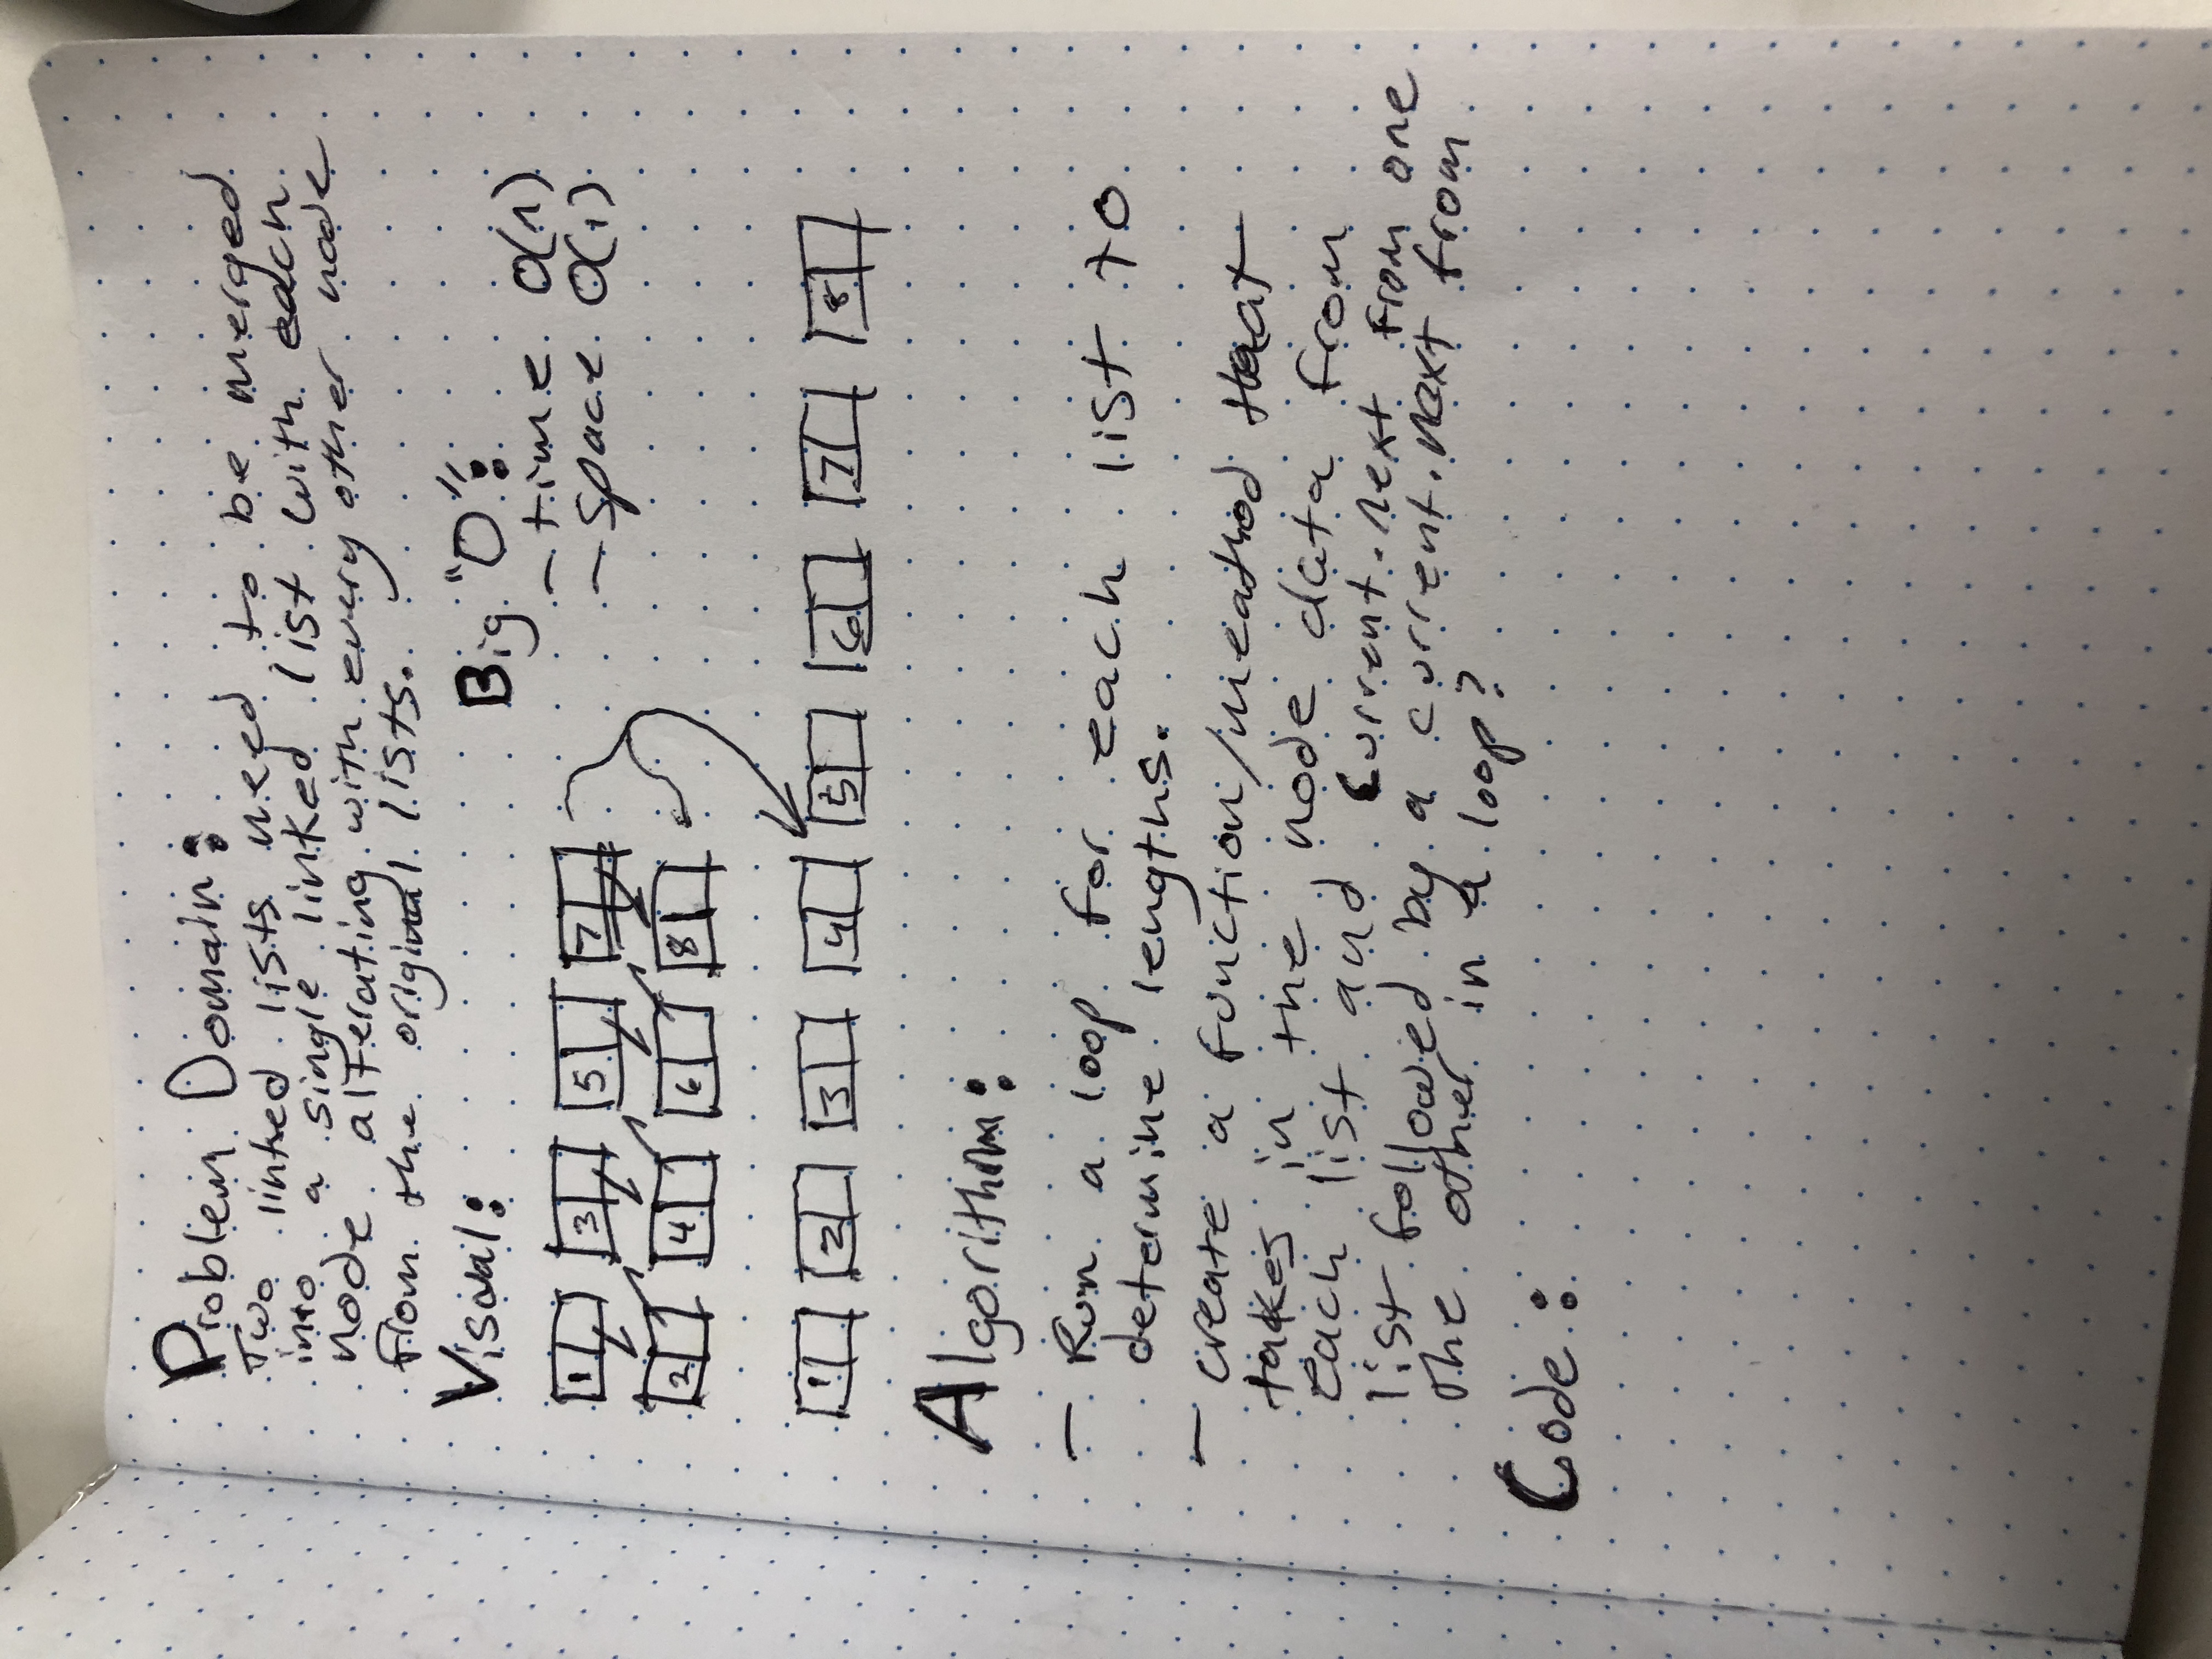 Problem Domain:
Two linked lists need to be merged
into a single linked list with each
node alterating with every other node
from the original lists.
Visual:
Big "O":
- time O(n)
- space O(1)
1 3 5 7
2 4 6 8
1 2 3 4 5 6 7 8
Algorithm:
- Run a loop for each list to
determine lengths.
- create a function/meathod that
takes in the node data from
each list and current.next from one
list followed by a current.next from
the other in a loop?
Code: